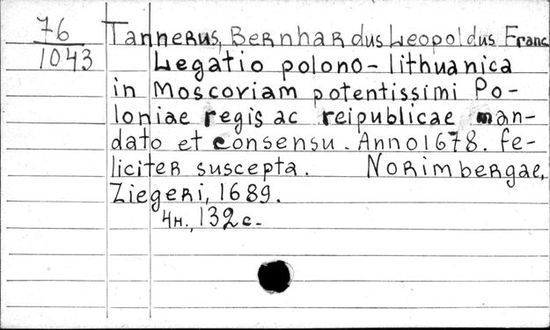 76 Tannerus, Bernhardus Leopoldus Franc
1043 Legatio polono-lithuanica
in Moscoviam potentissimi Po-
loniae regis ac reipublicae man-
dato et consensu. Anno 1678. fe-
liciter suscepta. Norimbergae,
Ziegeri, 1689.
4н., 132 с.